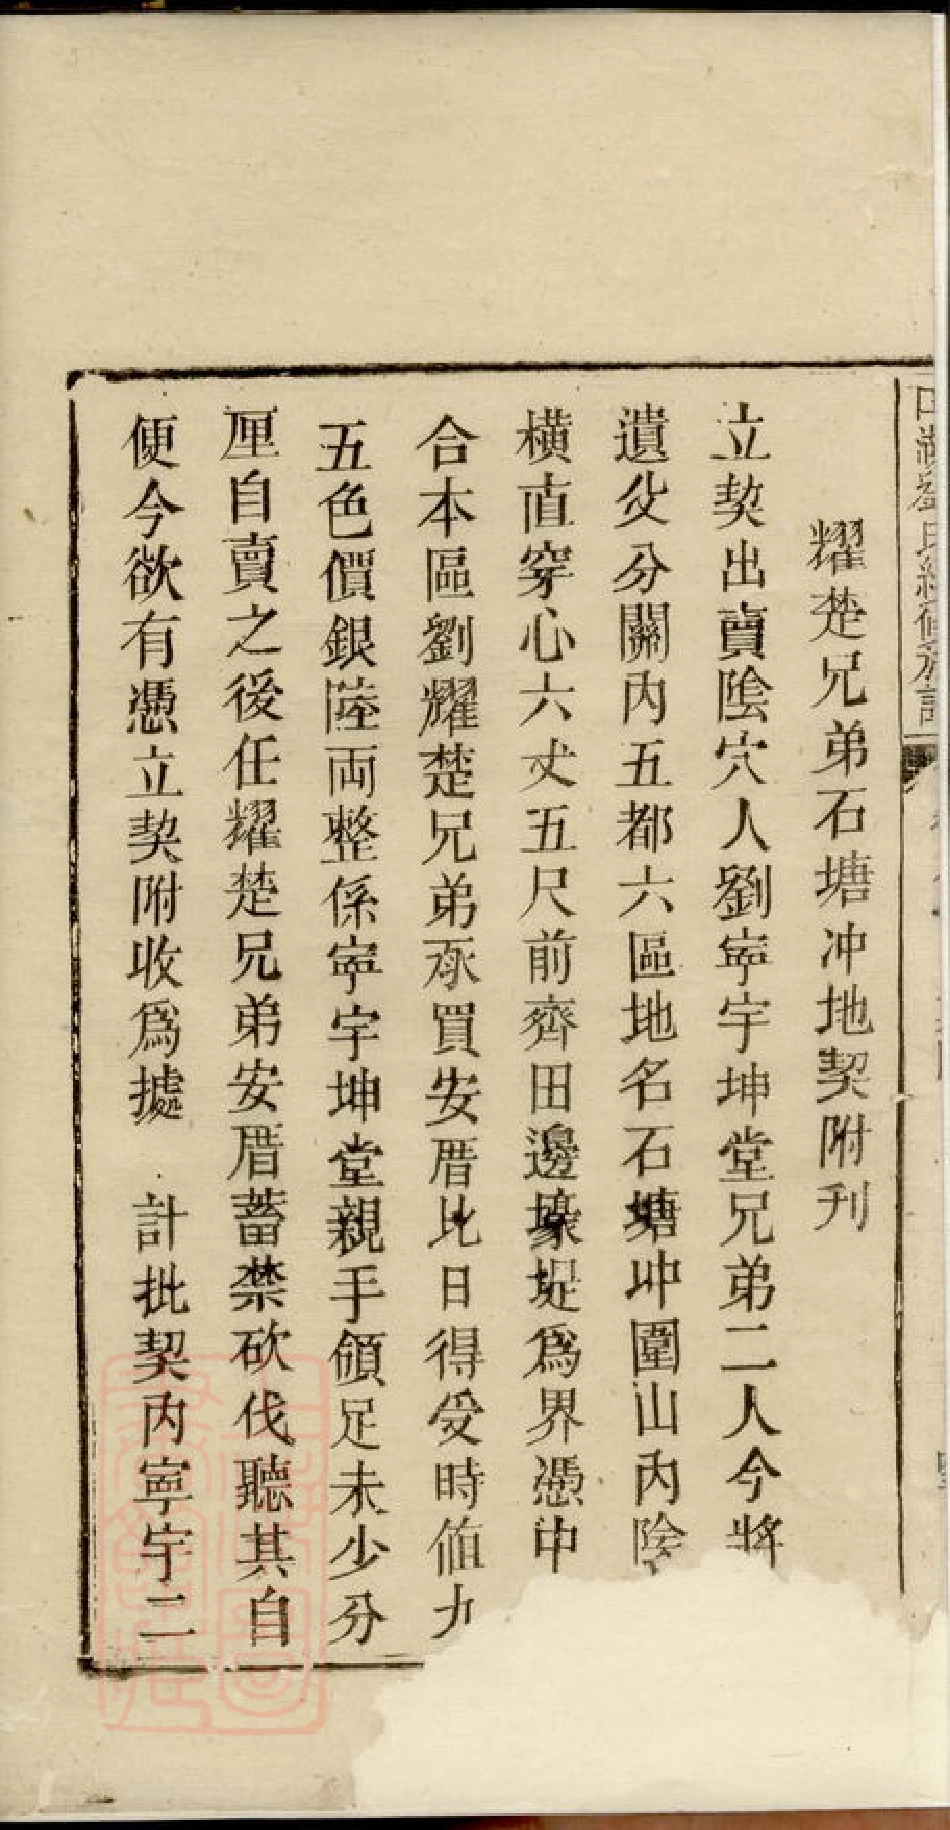 劉氏續修族
耀楚兄弟石塘冲地契附刊
立契出賣陰穴人劉寜宇坤堂兄弟二人今將
遺父分關內五都六區地名石塘冲圍山內陰
橫直穿心六丈五尺前齊田邊壕堤爲界憑中
合本區劉耀楚兄弟承買安厝比日得受時值九
五色價銀陸両整係寜宇坤堂親手領足未少分
厘自賣之後任耀楚兄弟安厝蓄禁砍伐聽其自
便今欲有憑立契附收爲據 計批契內寜宇二